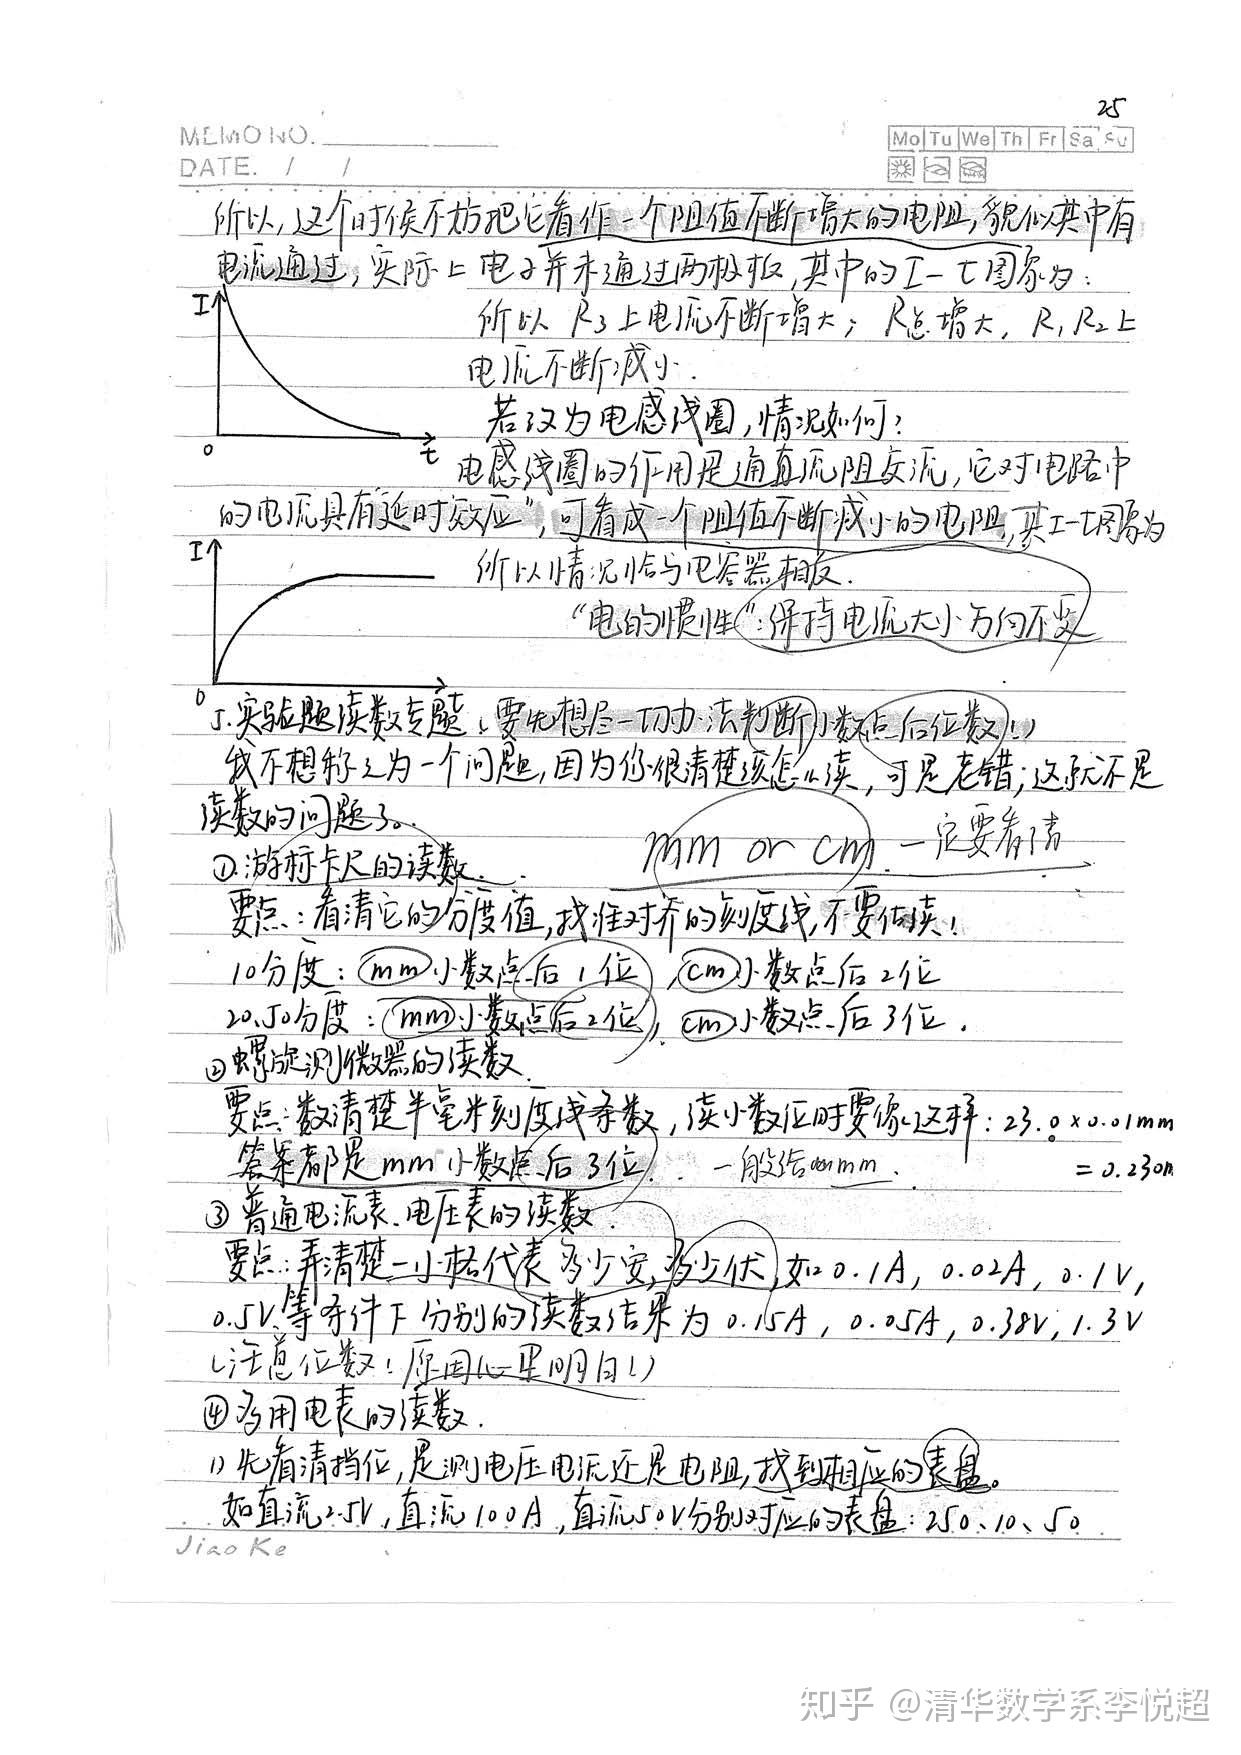 25
MEMO NO.
Mo Tu We Th Fr Sa Su
DATE. / /
所以,这个时候不妨把它看作一个阻值不断增大的电阻,貌似其中有
电流通过,实际上电子并未通过两极板,其中的I-t图象为:
I
所以R3上电流不断增大;R总增大,R1R2上
电流不断减小.
若改为电感线圈,情况如何?
0
t
电感线圈的作用是通直流阻交流,它对电路中
的电流具有"延时效应",可看成一个阻值不断减小的电阻,其I-t图象为
I
所以情况恰与电容器相反.
"电的惯性":保持电流大小方向不变
0
t
5.实验题读数专题(要先想尽一切办法判断小数点后位数!)
我不想称之为一个问题,因为你很清楚该怎么读,可是老错;这就不是
读数的问题了。
mm or cm 一定要看清
①.游标卡尺的读数.
要点:看清它的分度值,找准对齐的刻度线,不要估读!
10分度:mm小数点后1位,cm小数点后2位
20.50分度:mm小数点后2位,cm小数点后3位.
②螺旋测微器的读数.
要点:数清楚半毫米刻度线条数,读小数位时要像这样:23.0×0.01mm
答案都是mm小数点后3位. 一般给mm.
=0.230m
③普通电流表、电压表的读数.
要点:弄清楚一小格代表多少安,多少伏,如0.1A,0.02A,0.1V,
0.5V等条件下分别的读数结果为0.15A,0.05A,0.38V,1.3V
(注意位数!原因心里明白!)
④多用电表的读数.
1)先看清挡位,是测电压电流还是电阻,找到相应的表盘。
如直流2.5V,直流100A,直流50V分别对应的表盘:250、10、50
Jiao Ke
知乎 @清华数学系李悦超